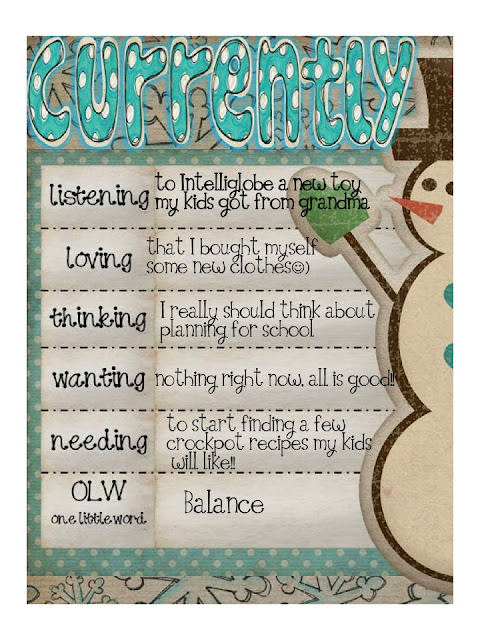 currently
listening
to Intelliglobe a new toy
my kids got from grandma
loving
that I bought myself
some new clothes☺)
thinking
I really should think about
planning for school
wanting
nothing right now, all is good!!
needing
to start finding a few
crockpot recipes my kids
will like!!
OLW
one little word
Balance